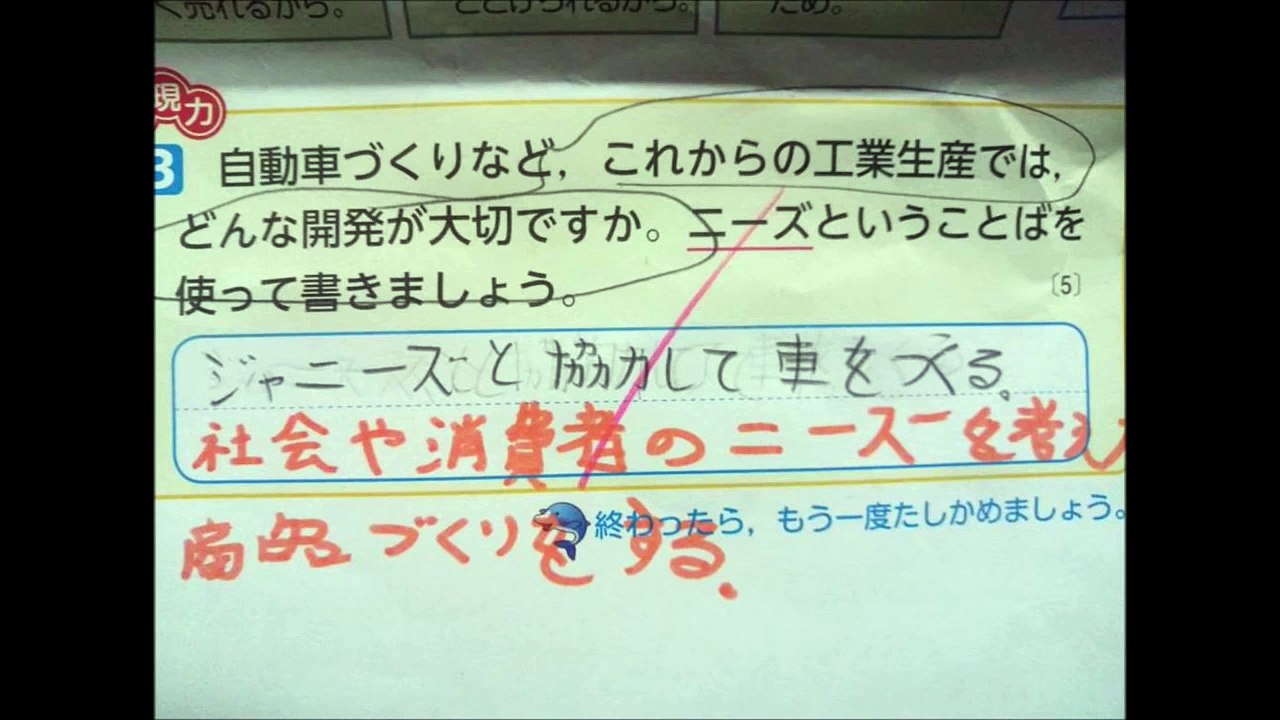 く売れるから。 とどけられるから。 ため。
現力
3 自動車づくりなど，これからの工業生産では，
どんな開発が大切ですか。ニーズということばを
使って書きましょう。 〔5〕
ジャニーズと協力して車をつくる。
社会や消費者のニーズを考え
商品づくりをする。
終わったら，もう一度たしかめましょう。